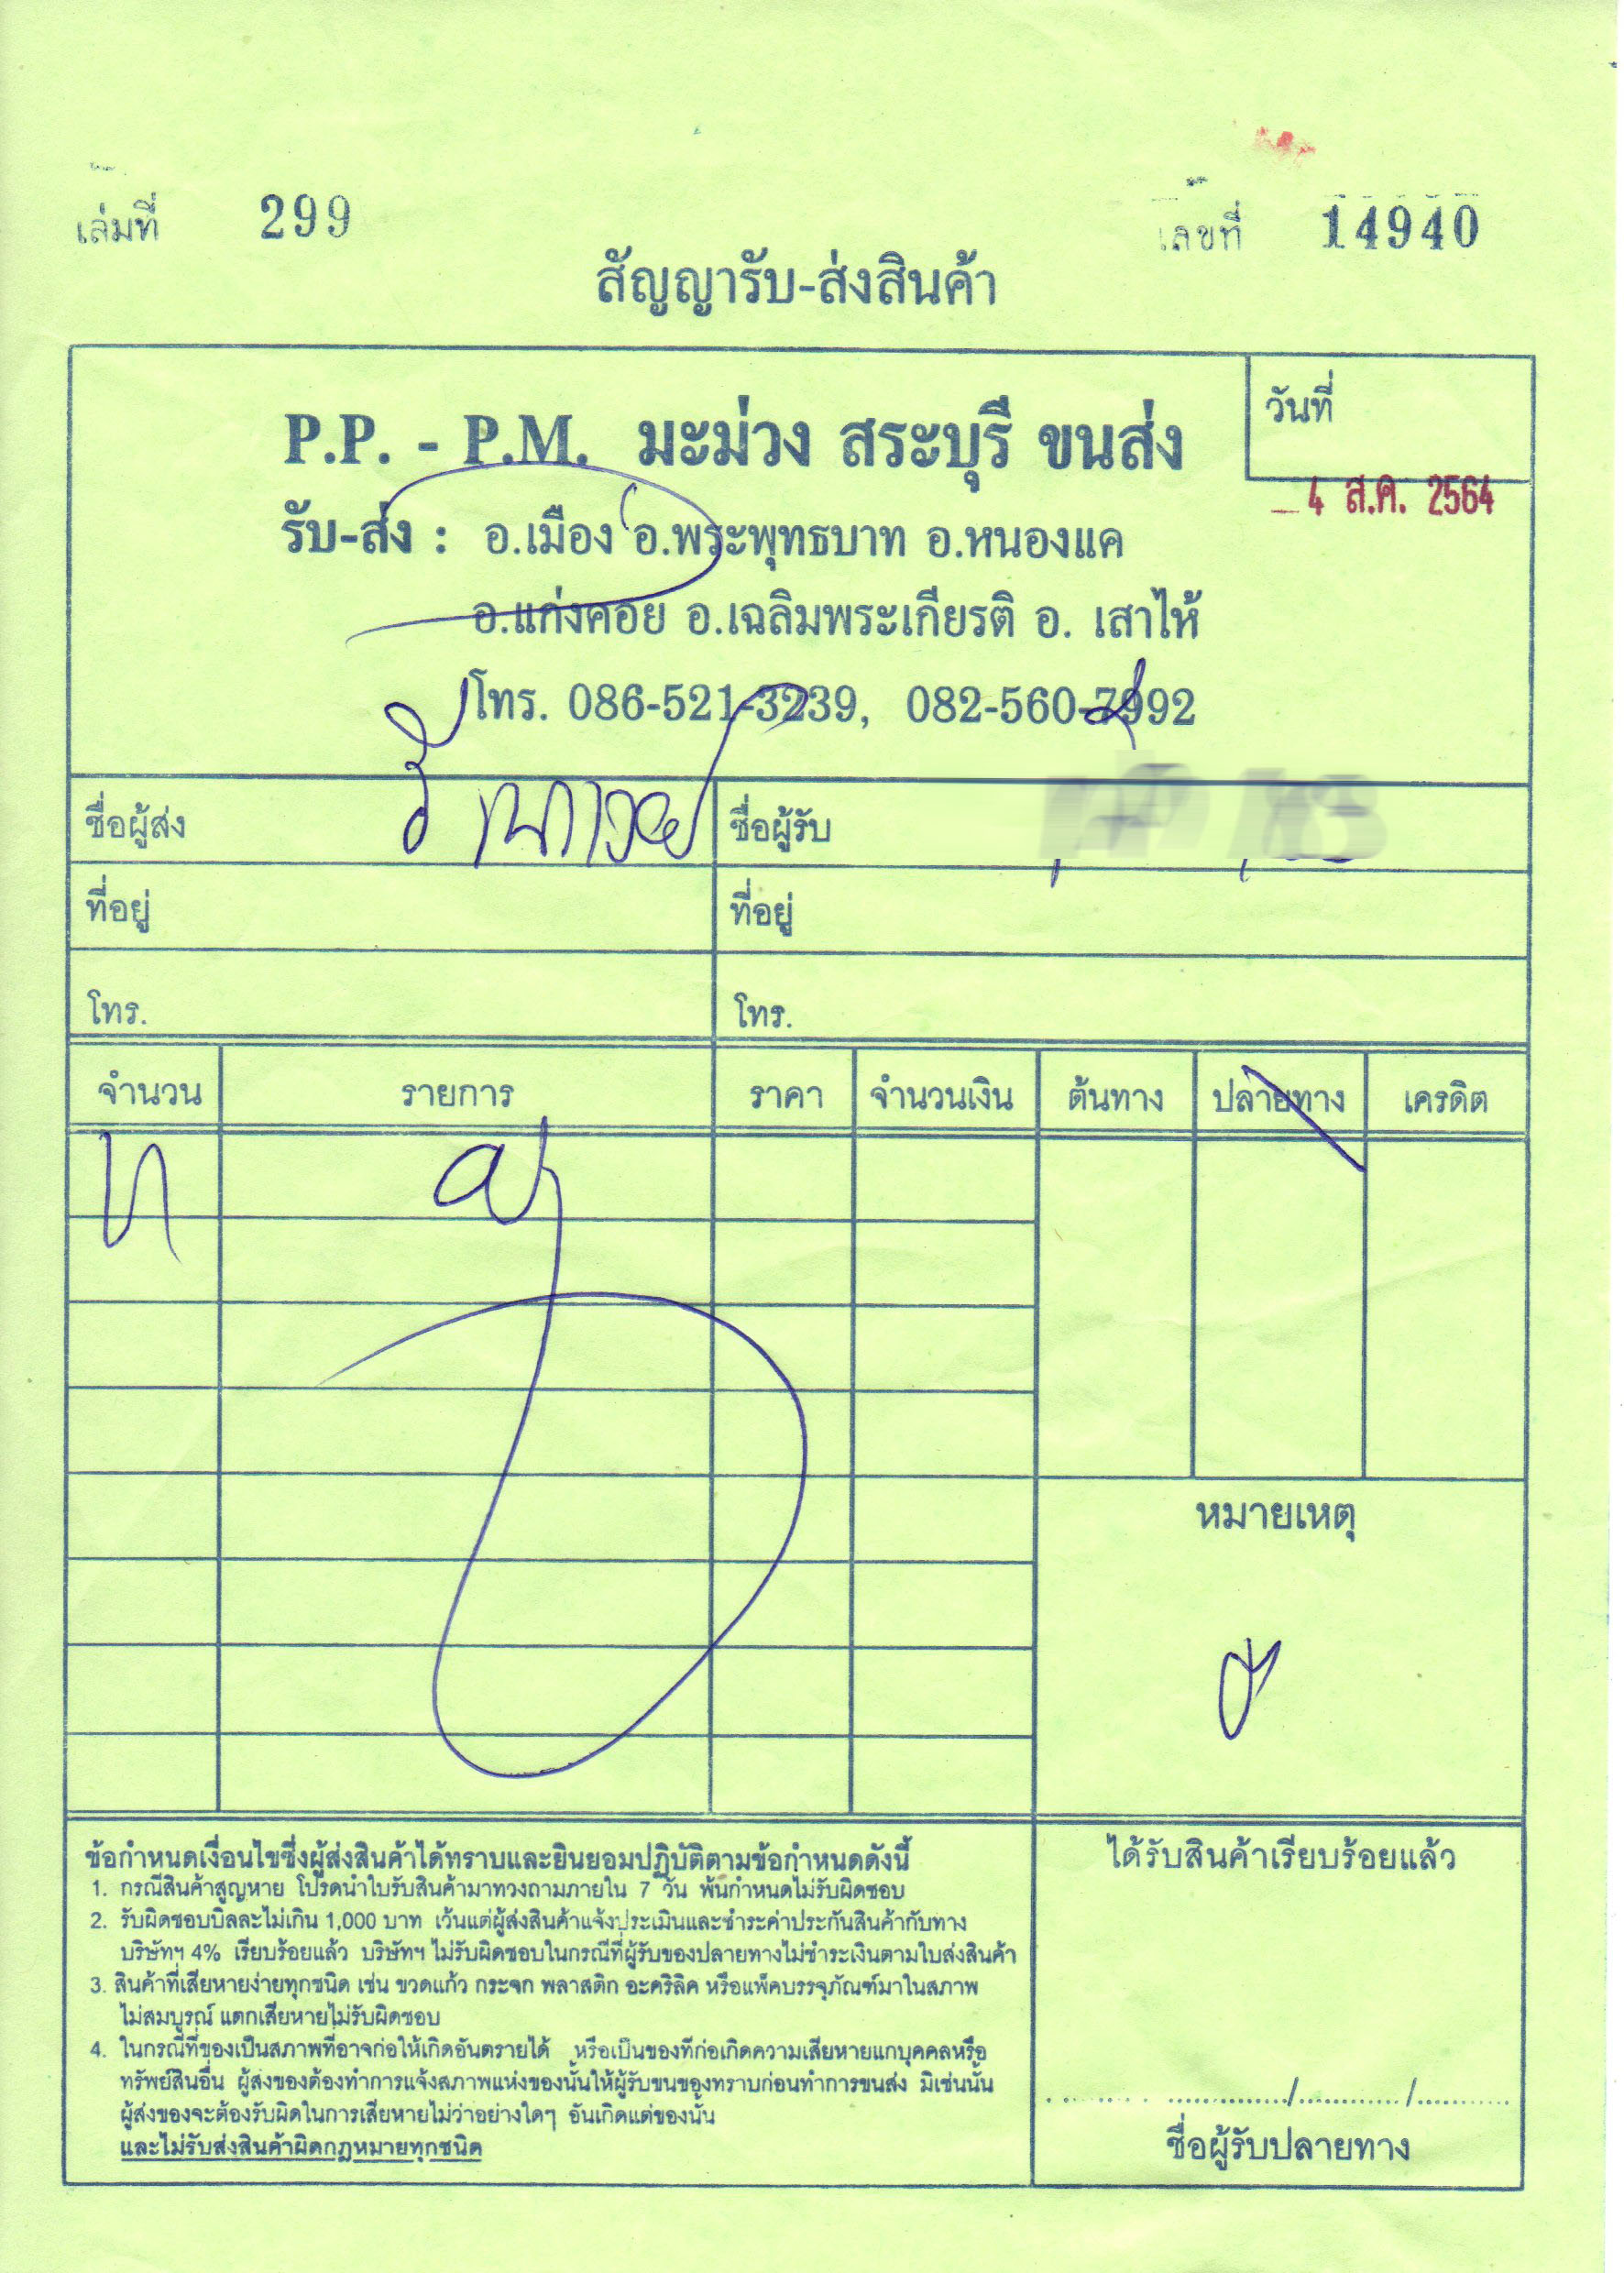 เล่มที่ 299
เลขที่ 14940
สัญญารับ-ส่งสินค้า
P.P. - P.M. มะม่วง สระบุรี ขนส่ง
วันที่
4 ส.ค. 2564
รับ-ส่ง : อ.เมือง อ.พระพุทธบาท อ.หนองแค
อ.แก่งคอย อ.เฉลิมพระเกียรติ อ. เสาไห้
โทร. 086-521-3239, 082-560-7992
ชื่อผู้ส่ง ชื่อผู้รับ
ที่อยู่ ที่อยู่
โทร. โทร.
จำนวน รายการ ราคา จำนวนเงิน ต้นทาง ปลายทาง เครดิต
หมายเหตุ
ข้อกำหนดเงื่อนไขซึ่งผู้ส่งสินค้าได้ทราบและยินยอมปฏิบัติตามข้อกำหนดดังนี้
1. กรณีสินค้าสูญหาย โปรดนำใบรับสินค้ามาทวงถามภายใน 7 วัน พ้นกำหนดไม่รับผิดชอบ
2. รับผิดชอบบิลละไม่เกิน 1,000 บาท เว้นแต่ผู้ส่งสินค้าแจ้งประเมินและชำระค่าประกันสินค้ากับทาง
บริษัทฯ 4% เรียบร้อยแล้ว บริษัทฯ ไม่รับผิดชอบในกรณีที่ผู้รับของปลายทางไม่ชำระเงินตามใบส่งสินค้า
3. สินค้าที่เสียหายง่ายทุกชนิด เช่น ขวดแก้ว กระจก พลาสติก อะคริลิค หรือแพ็คบรรจุภัณฑ์มาในสภาพ
ไม่สมบูรณ์ แตกเสียหายไม่รับผิดชอบ
4. ในกรณีที่ของเป็นสภาพที่อาจก่อให้เกิดอันตรายได้ หรือเป็นของที่ก่อเกิดความเสียหายแก่บุคคลหรือ
ทรัพย์สินอื่น ผู้ส่งของต้องทำการแจ้งสภาพแห่งของนั้นให้ผู้รับขนของทราบก่อนทำการขนส่ง มิเช่นนั้น
ผู้ส่งของจะต้องรับผิดในการเสียหายไม่ว่าอย่างใดๆ อันเกิดแต่ของนั้น
และไม่รับส่งสินค้าผิดกฎหมายทุกชนิด
ได้รับสินค้าเรียบร้อยแล้ว
............/............/............
ชื่อผู้รับปลายทาง